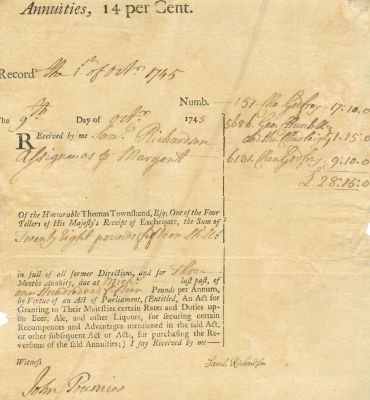 Annuities, 14 per Cent.
Record the 1st of Octr 1745
Numb. 151 Cha Godfrey 17:10:0
The 9th Day of Octr 1745 5686 Geo.
Received by me Saml Richardson 1:15:0
Assignees of Margent 6131 Chas Godfrey 9:10:0
£ 28:15:0
Of the Honourable Thomas Townshend, Esq; One of the Four
Tellers of His Majesty's Receipt of Exchequer, the Sum of
Twenty Eight pounds fifteen Shills
in full of all former Directions, and for Three
Months Annuity, due at Mich's last past, of
one hundred & fifteen Pounds per Annum,
by Virtue of an Act of Parliament, (Entitled, An Act for
Granting to Their Majesties certain Rates and Duties up-
on Beer, Ale, and other Liquors, for securing certain
Recompences and Advantages mentioned in the said Act,
or other subsequent Act or Acts, for purchasing the Re-
versions of the said Annuities;) I say Received by me—
Witness Saml Richardson
John